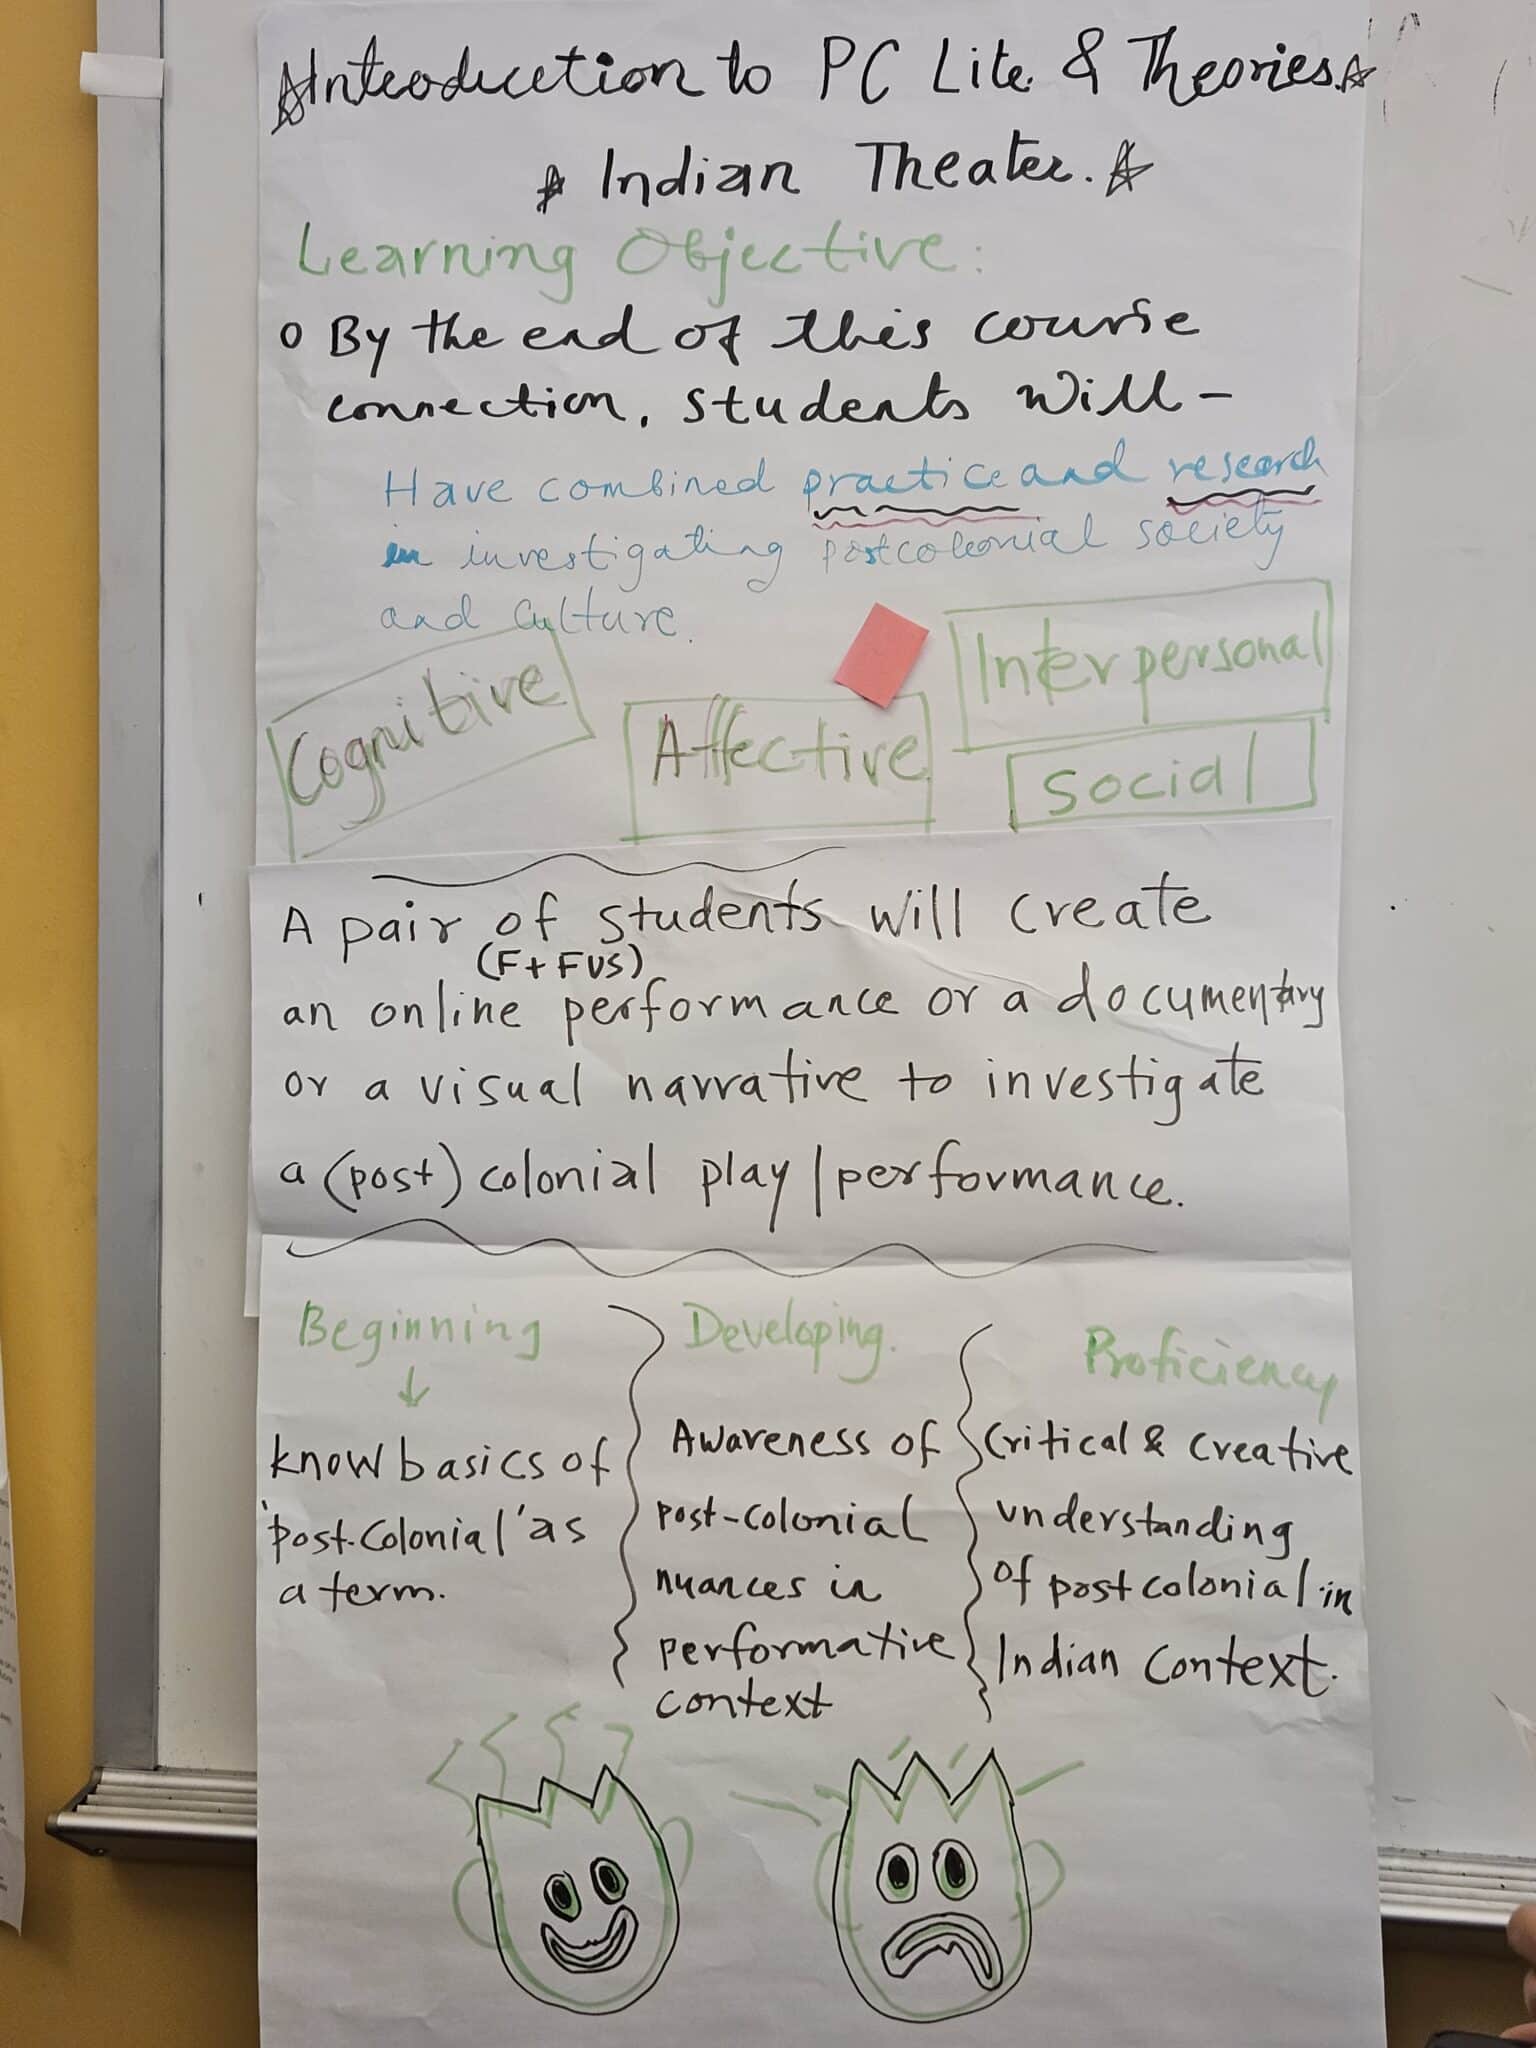 Introducetion to PC Lite & Theories.
Indian Theater.
Learning Objective:
By the end of this course
connection, students will -
Have combined practice and research
in investigating postcolonial society
and culture.
Interpersonal
Cognitive
Affective
Social
A pair of students will create
(F+FVS)
an online performance or a documentary
or a visual narrative to investigate
a (post) colonial play/performance.
Beginning
know basics of
'post-Colonial' as
a term.
Developing.
Awareness of
post-colonial
nuances in
performative
context
Proficiency
Critical & creative
understanding
of postcolonial in
Indian Context.